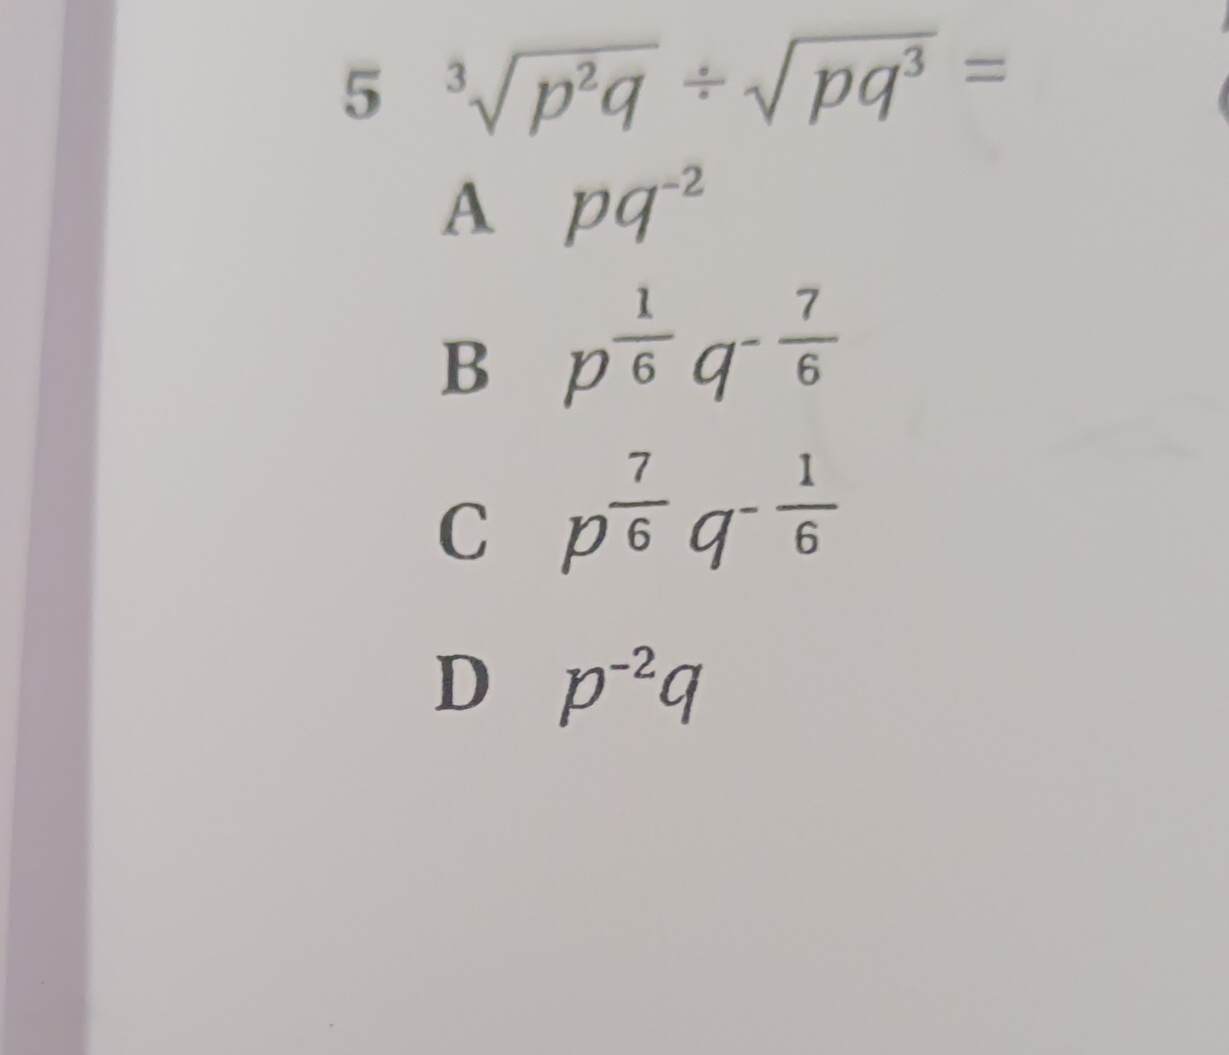 5 ∛(p²q) ÷ √(pq³) =
A pq⁻²
B p^(1/6) q^(-7/6)
C p^(7/6) q^(-1/6)
D p⁻²q